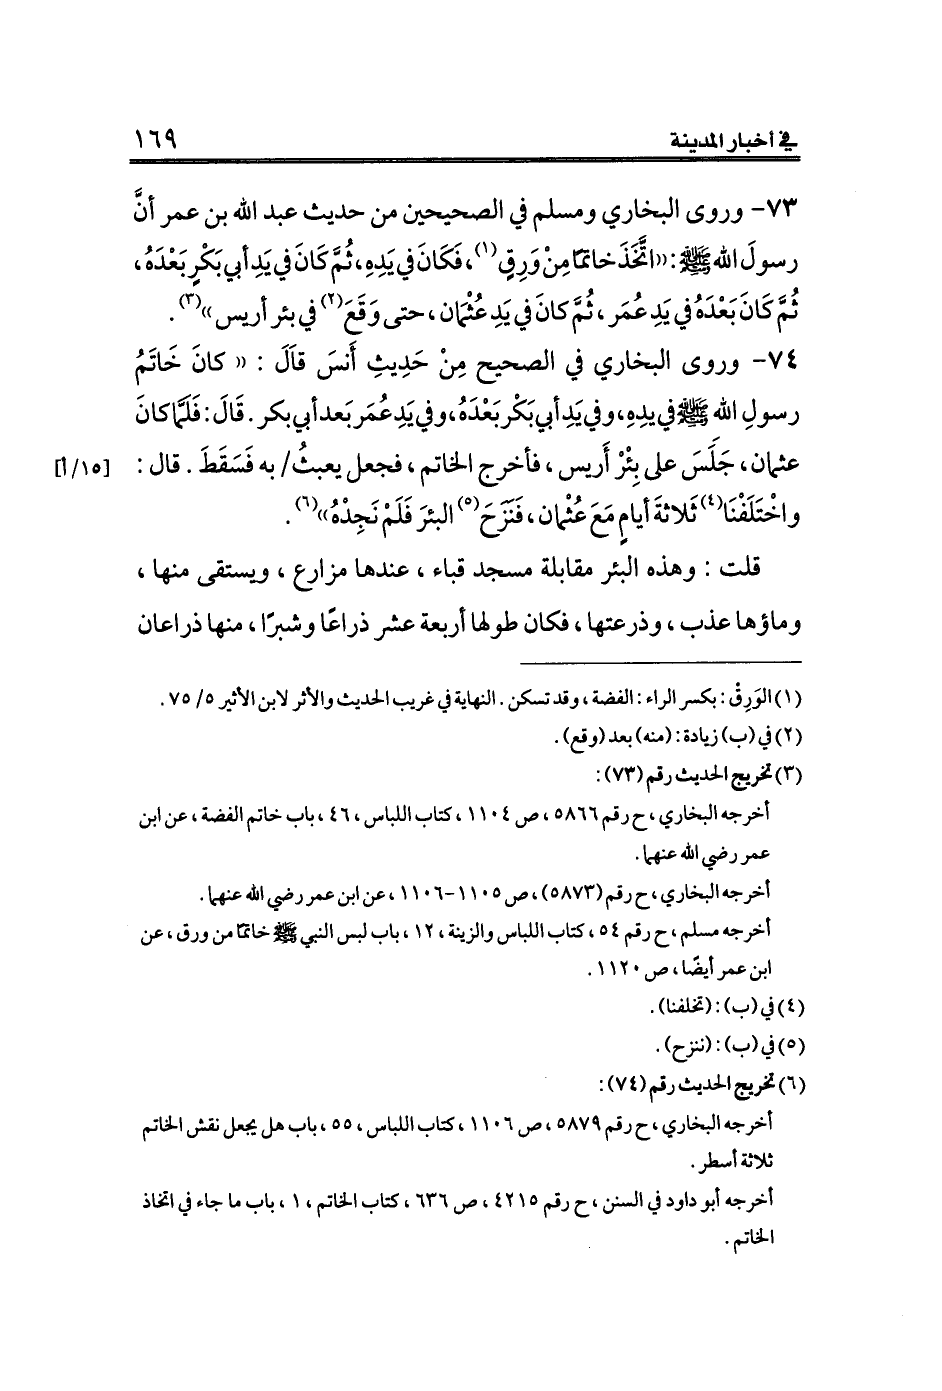 في أخبار المدينة ١٦٩
٧٣- وروى البخاري ومسلم في الصحيحين من حديث عبد الله بن عمر أنَّ
رسولَ الله ﷺ: «اتَّخَذَ خاتمًا مِنْ وَرِقٍ(١)، فَكَانَ في يَدِهِ، ثُمَّ كَانَ في يَدِ أبي بَكْرٍ بَعْدَهُ،
ثُمَّ كَانَ بَعْدَهُ في يَدِ عُمَر، ثُمَّ كانَ في يَدِ عُثْمَان، حتى وَقَعَ(٢) في بئر أريس»(٣).
٧٤- وروى البخاري في الصحيح مِنْ حَدِيثِ أَنسَ قاَلَ : « كانَ خَاتَمُ
رسولِ الله ﷺ في يدِهِ، وفي يَدِ أبي بَكْر بَعْدَهُ، وفي يَدِ عُمَر بَعد أبي بكر. قَالَ: فَلَمَّا كانَ
عثمان، جَلَسَ على بِئْرْ أَريس، فأخرج الخاتم، فجعل يعبثُ/ به فَسَقَطَ. قال: [١٥/أ]
واخْتَلَفْنَا(٤) ثَلاثةَ أيامٍ مَعَ عُثْمان، فَنَزَحَ(٥) البئرَ فَلَمْ نَجِدْهُ»(٦).
قلت : وهذه البئر مقابلة مسجد قباء ، عندها مزارع ، ويستقى منها ،
وماؤها عذب، وذرعتها، فكان طولها أربعة عشر ذراعًا وشبرًا، منها ذراعان
(١) الوَرِقْ: بكسر الراء: الفضة، وقد تسكن. النهاية في غريب الحديث والأثر لابن الأثير ٥/ ٧٥.
(٢) في (ب) زيادة: (منه) بعد (وقع).
(٣) تخريج الحديث رقم (٧٣):
أخرجه البخاري، ح رقم ٥٨٦٦، ص ١١٠٤، كتاب اللباس، ٤٦، باب خاتم الفضة، عن ابن
عمر رضي الله عنهما.
أخرجه البخاري، ح رقم (٥٨٧٣)، ص ١١٠٥-١١٠٦، عن ابن عمر رضي الله عنهما.
أخرجه مسلم، ح رقم ٥٤، كتاب اللباس والزينة، ١٢، باب لبس النبي ﷺ خاتمًا من ورق، عن
ابن عمر أيضًا، ص ١١٢٠.
(٤) في (ب): (تخلفنا).
(٥) في (ب): (ننزح).
(٦) تخريج الحديث رقم (٧٤):
أخرجه البخاري، ح رقم ٥٨٧٩، ص ١١٠٦، كتاب اللباس، ٥٥، باب هل يجعل نقش الخاتم
ثلاثة أسطر.
أخرجه أبو داود في السنن، ح رقم ٤٢١٥، ص ٦٣٦، كتاب الخاتم، ١، باب ما جاء في اتخاذ
الخاتم.